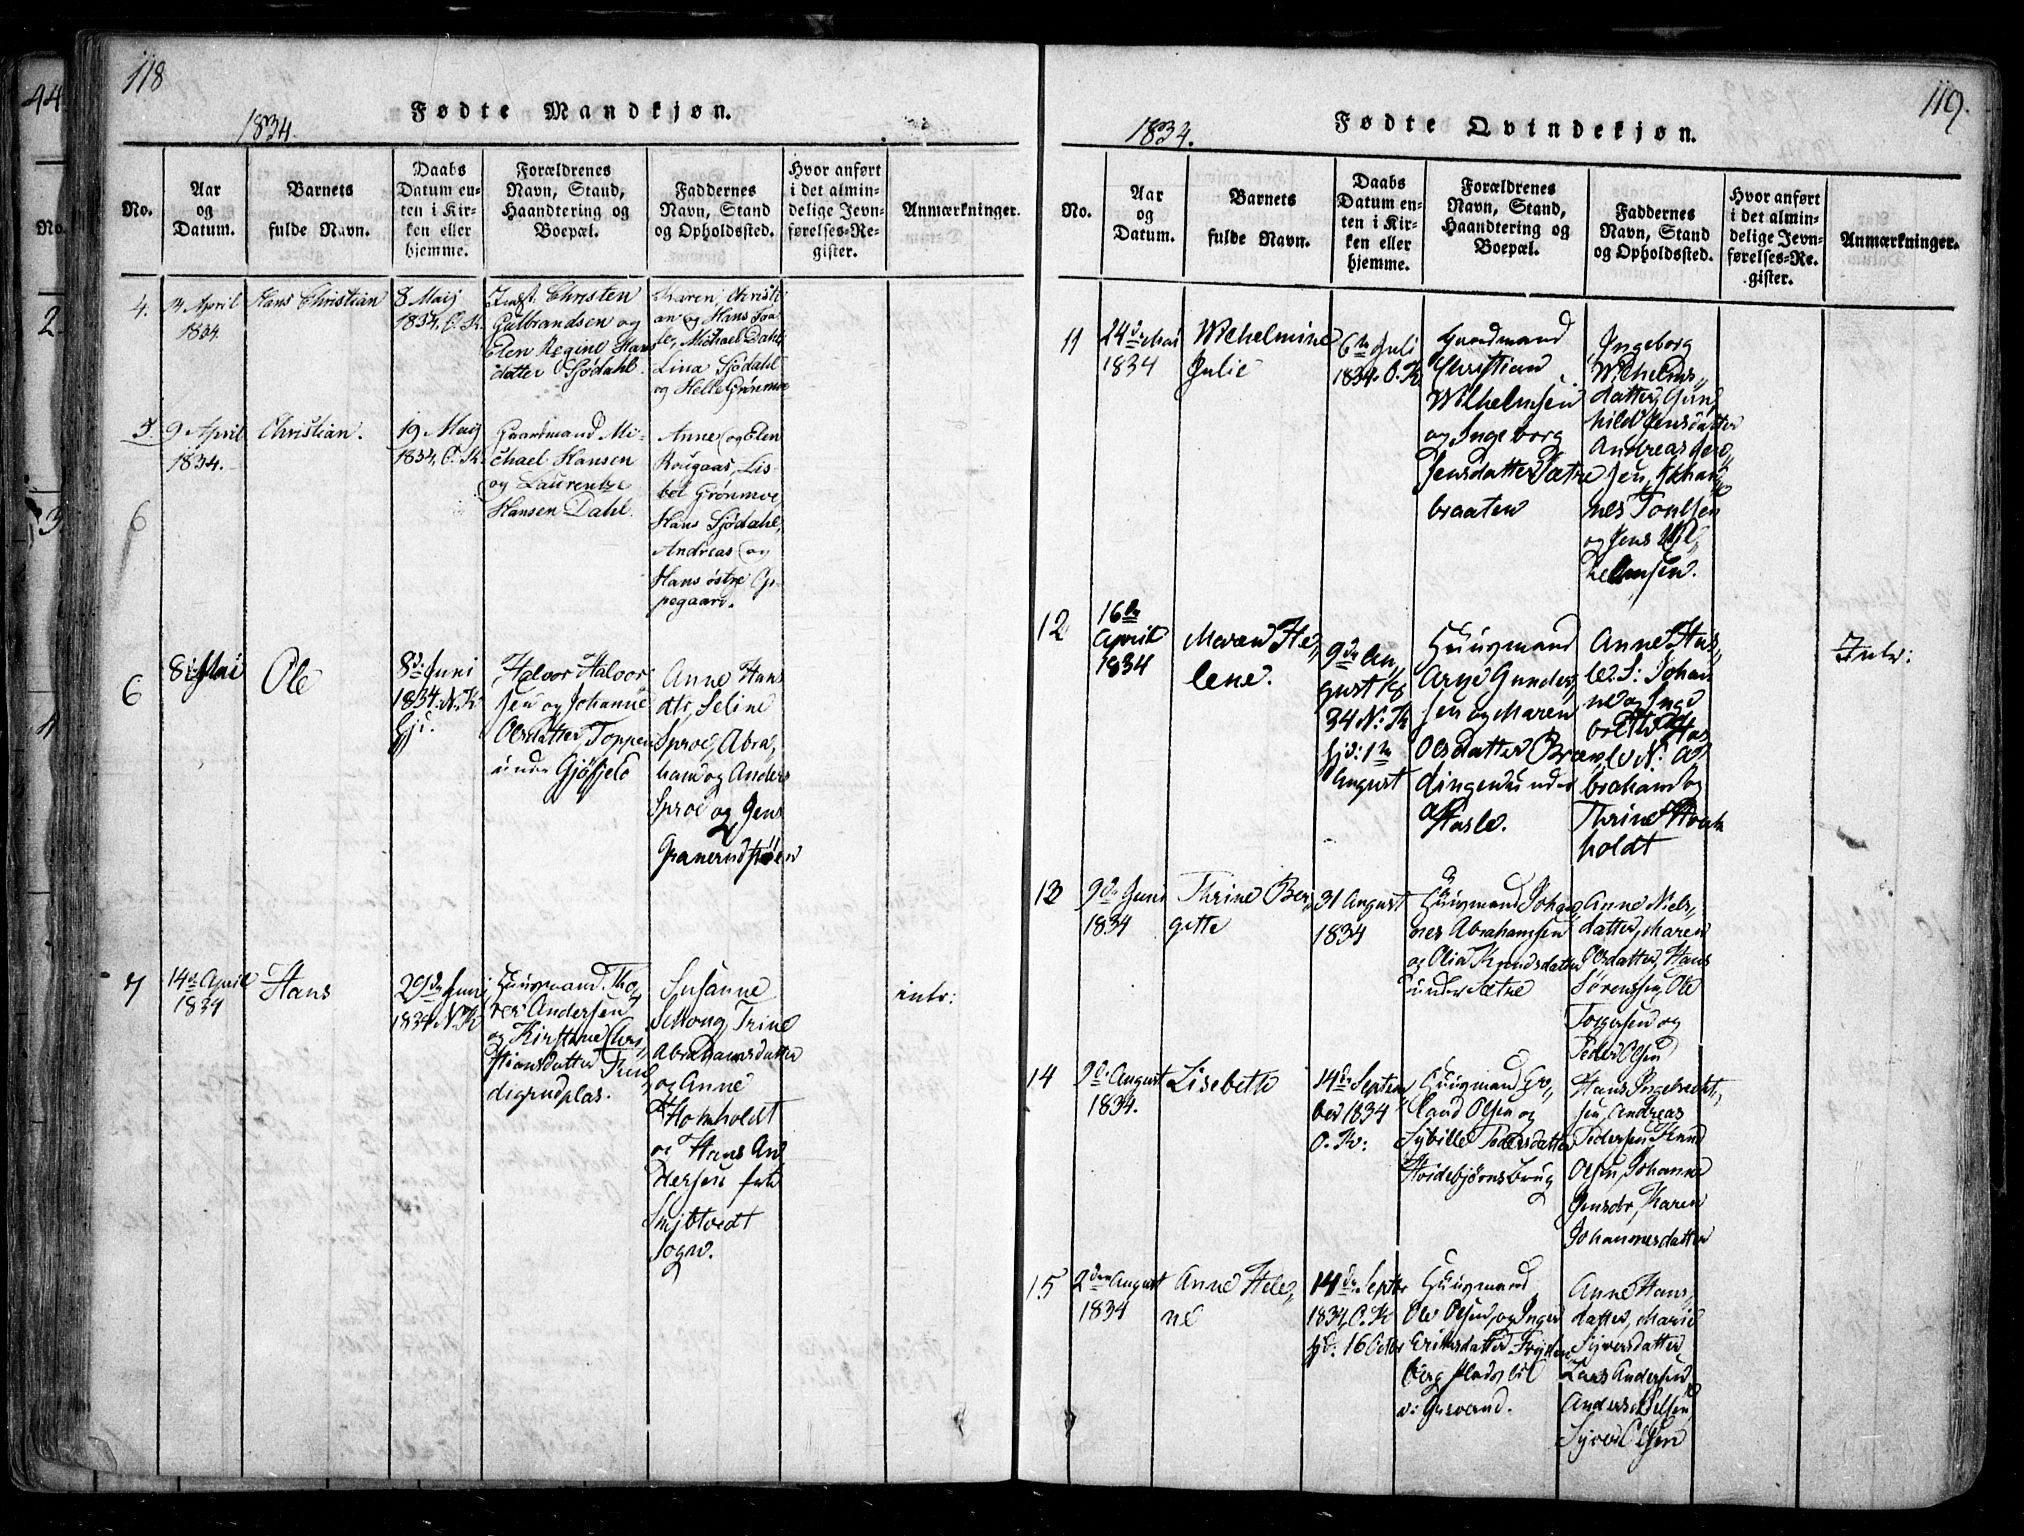 118
1834.
Fødte Mandkjøn.
No.
Aar
og
Datum.
Barnets
fulde Navn.
Daabs
Datum en-
ten i Kir-
ken eller
hjemme.
Forældrenes
Navn, Stand,
Haandtering og
Boepæl.
Faddernes
Navn, Stand
og Opholdssted.
Hvor anført
i det almin-
delige Jevn-
førelses-Re-
gister.
Anmærkninger.
4.
April
1834.
Hans Christian
8 Maij
1834, O. K.
Christen
Gulbrandsen og
Elen Regine Hans
datter Sjødahl.
Karen, Christi
an og Hans
Michael Dahl
Lina Sjødahl
og Helle Grønmoe
5.
9 April
1834.
Christian.
19 Maij
1834, O. K.
Gaardmand Mi-
chael Hansen
og Laurentze
Hansen Dahl.
Anne og Elen
Rougaas, Lis-
bet Grønmoe,
Hans Sjødahl,
Andreas og
Hans østre Op-
pegaard.
6
6
8 Mai
Ole
8de Juni
1834. N. K.
Hj.
Halvor Halvor
sen og Johanne
Olsdatter, Toppen
under Gjøfjeld
Anne Hans
dtr, Seline
Sproe, Abra,
ham og Anders
Sproe og Jens
7
14de April
1834
Hans
29de Juni
1834. N. K
Huusmand. Tho,
res Andersen
og Kirstine Chri
stiansdatter
plas.
Susanne
Trine
Abrahamsdatter
og Anne
Homholdt
og Hans An,
dersen fra
Sogn.
intr:
119.
1834.
Fødte Qvindekjøn.
No.
Aar
og
Datum.
Barnets
fulde Navn.
Daabs
Datum en-
ten i Kir-
ken eller
hjemme.
Forældrenes
Navn, Stand,
Haandtering og
Boepæl.
Faddernes
Navn, Stand
og Opholdssted.
Hvor anført
i det almin-
delige Jevn-
førelses-Re-
gister.
Anmærkninger.
11
24de Mai
1834
Wilhelmine
Julie
6te Juli
1834. O. K
Gaardmand
Christian
Wilhelmsen
og Ingeborg
Jensdatter Sætre
braaten
Ingeborg
Wilhelms,
datter, Gun,
hild Jensdatter
Andreas
sen, Johan,
nes Poulsen
og Jens Wil,
helmsen.
12
16de
April
1834
Maren He,
lene.
9de Au,
gust 18
34 N: K
hjd: 1te
August
Huusmand
Arne Gunder,
sen og Maren
Olsdatter Bræn,
dingen under
Hasle.
Anne Has,
le. S: Johan
ne og Inge
Has
le N: A
braham og
Thrine Hom
holdt
Intr:
13
9de Juni
1834
Thrine Ber,
gette
31 August
1834
Huusmand Johan,
nes Abrahamsen
og Olia Knudsdatter
under Sætre
Anne Niels,
datter, Maren
Olsdatter, Hans
Sørenssen, Ole
Torgersen og
Peder Olsen
14
9de August
1834.
Lisebeth
14de Septem,
ber 1834
O. K:
Huusmand Er,
land Olsen og
Sybille Pedersdatter
Hvidebjørnsbrug
Hans Ingebrecht,
sen, Andreas
Pedersen, Knud
Olsen, Johanne
Jensdr, Karen
Johannesdatter
15
2den August
1834
Anne Hele,
ne
14de Septbr
1834, O. K
hjd: 16 Octbr
Huusmand
Ole Olsen, og Inger
Eriksdatter Fryden
berg Plads til
Anne Hans,
datter, Marie
Syversdatter
Lars Andersen
Anders Nielsen
Syver Olsen